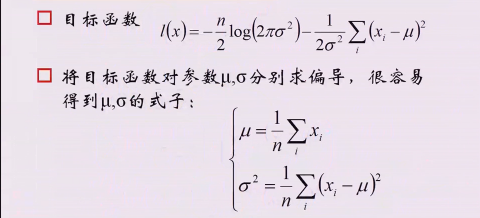 目标函数 l(x) = -\frac{n}{2}\log(2\pi\sigma^2) - \frac{1}{2\sigma^2}\sum_i (x_i - \mu)^2
将目标函数对参数μ,σ分别求偏导，很容易
得到μ,σ的式子：
\mu = \frac{1}{n}\sum_i x_i
\sigma^2 = \frac{1}{n}\sum_i (x_i - \mu)^2